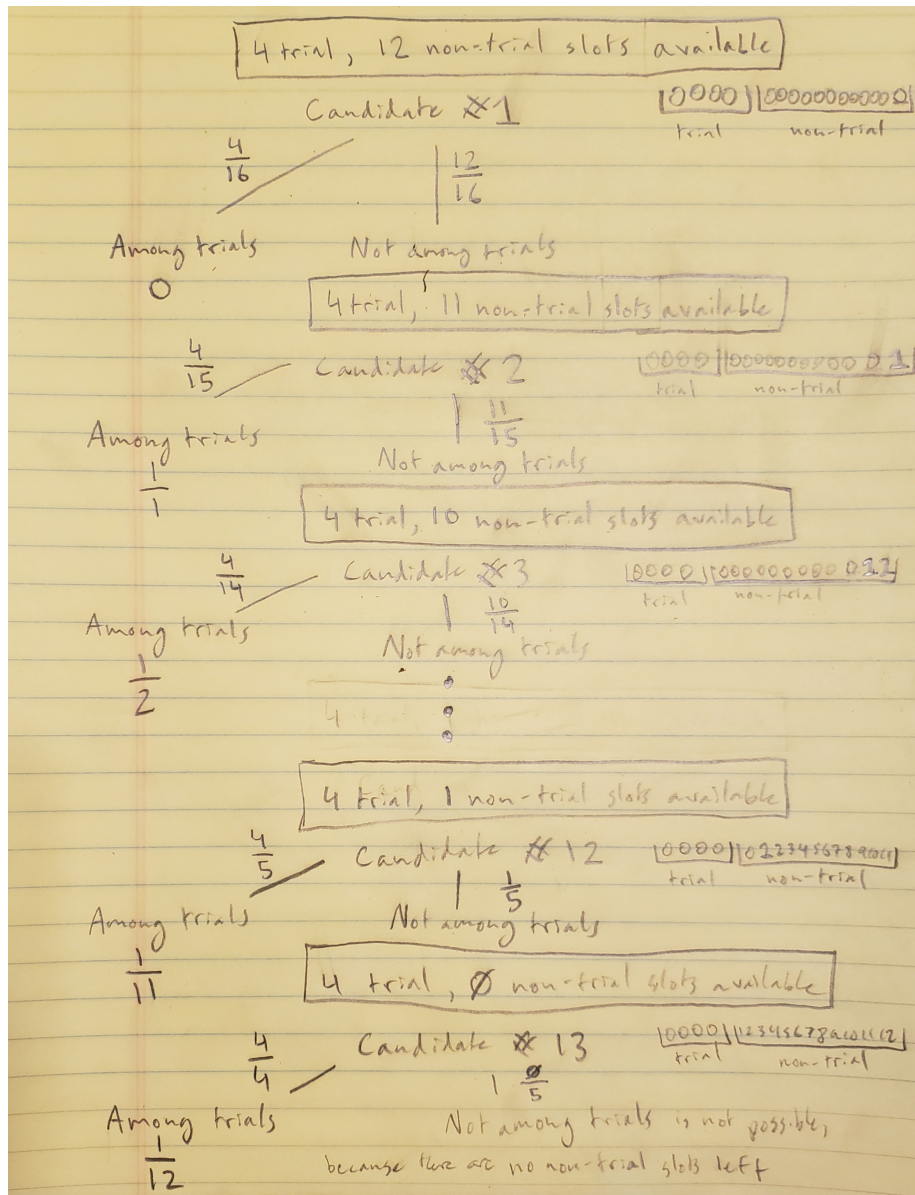 4 trial, 12 non-trial slots available
Candidate #1
0000 000000000000
trial non-trial
4/16
12/16
Among trials Not among trials
0
4 trial, 11 non-trial slots available
4/15 Candidate # 2
0000 000000000001
trial non-trial
11/15
Among trials
Not among trials
1/1
4 trial, 10 non-trial slots available
4/14 Candidate #3
0000 000000000012
trial non-trial
10/14
Among trials
Not among trials
1/2
4
4 trial, 1 non-trial slots available
4/5 Candidate # 12
0000 01234567891011
trial non-trial
1/5
Among trials Not among trials
1/11
4 trial, 0 non-trial slots available
4/4 Candidate # 13
0000 123456789101112
trial non-trial
0/5
Among trials Not among trials is not possible,
1/12 because there are no non-trial slots left